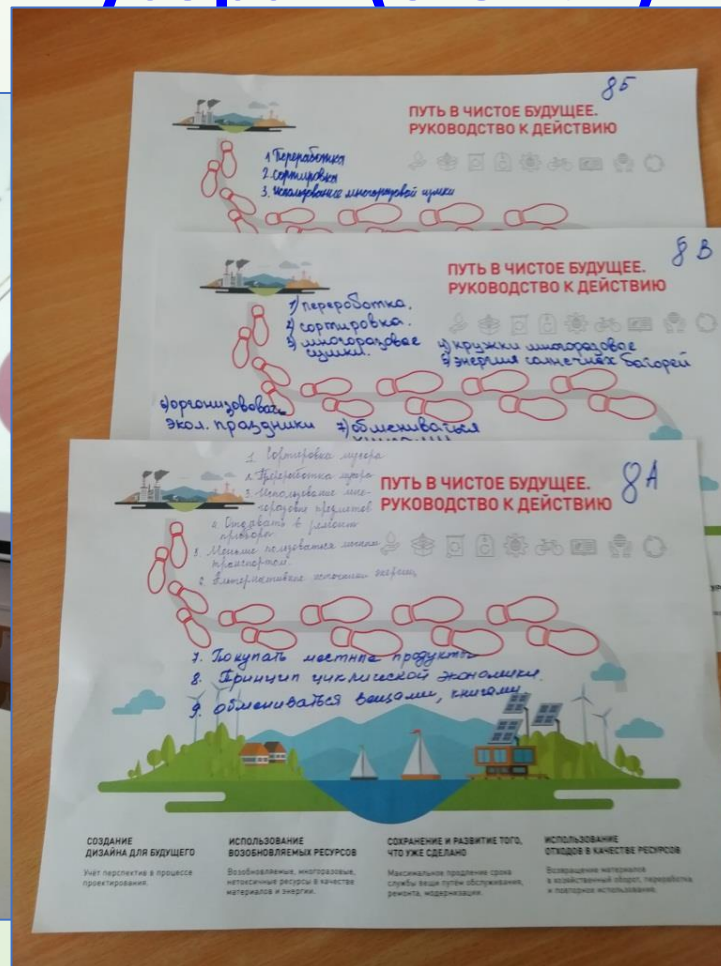 8Б
ПУТЬ В ЧИСТОЕ БУДУЩЕЕ.
РУКОВОДСТВО К ДЕЙСТВИЮ
1 Переработка
2. сортировка
3. использование многоразовой сумки
8 В
ПУТЬ В ЧИСТОЕ БУДУЩЕЕ.
РУКОВОДСТВО К ДЕЙСТВИЮ
1) переработка.
2) сортировка.
3) многоразовое
сумки.
4) кружки многоразовое
5) энергия солнечных батарей
6) организовова
экол. праздники
7) обмениваться
8А
ПУТЬ В ЧИСТОЕ БУДУЩЕЕ.
РУКОВОДСТВО К ДЕЙСТВИЮ
1. Сортировка мусора
2. Переработка мусора
3. Использование мно-
горазовых предметов
4. Отдавать в ремонт
приборы
5. Меньше пользоваться личным
транспортом.
Альтернативные источники энергии
7. Покупать местные продукты
8. Принцип циклической экономики.
9. обмениваться вещами, книгами
СОЗДАНИЕ
ДИЗАЙНА ДЛЯ БУДУЩЕГО
Учёт перспектив в процессе
проектирования.
ИСПОЛЬЗОВАНИЕ
ВОЗОБНОВЛЯЕМЫХ РЕСУРСОВ
Возобновляемые, многоразовые,
нетоксичные ресурсы в качестве
материалов и энергии.
СОХРАНЕНИЕ И РАЗВИТИЕ ТОГО,
ЧТО УЖЕ СДЕЛАНО
Максимальное продление срока
службы вещи путём обслуживания,
ремонта, модернизации.
ИСПОЛЬЗОВАНИЕ
ОТХОДОВ В КАЧЕСТВЕ РЕСУРСОВ
Возвращение материалов
в хозяйственный оборот, переработка
и повторное использование.